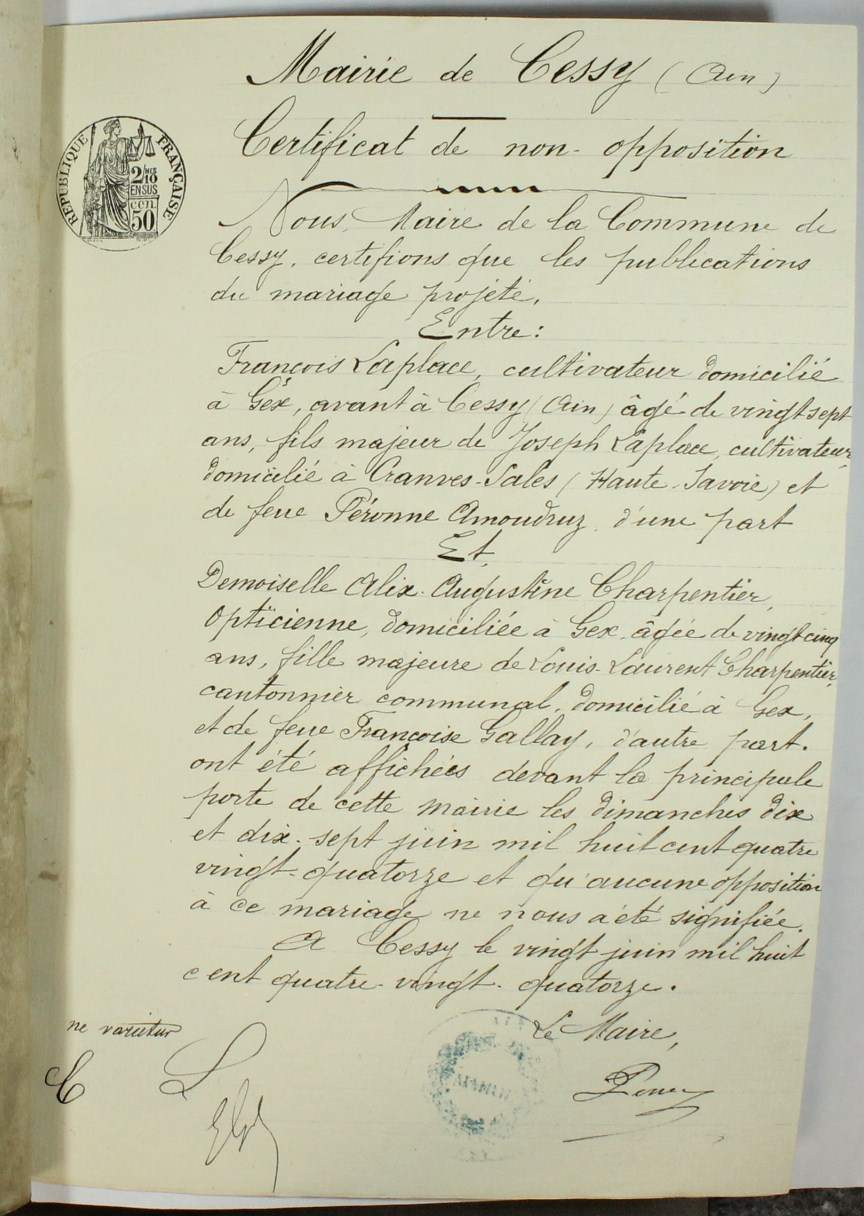 Mairie de Cessy (Ain)
Certificat de non-opposition
RÉPUBLIQUE FRANÇAISE
2/10
EN SUS
cen
50
Nous, Maire de la Commune de
Cessy, certifions que les publications
du mariage projeté,
Entre:
François Laplace, cultivateur domicilié
à Gex, avant à Cessy (Ain) âgé de vingt sept
ans, fils majeur de Joseph Laplace, cultivateur,
domicilié à Cranves-Sales (Haute-Savoie) et
de feue Péronne Amoudruz, d'une part
Et
Demoiselle Alix-Augustine Charpentier,
Opticienne, domiciliée à Gex, âgée de vingt cinq
ans, fille majeure de Louis Laurent Charpentier,
cantonnier communal, domicilié à Gex,
et de feue Françoise Gallay, d'autre part.
ont été affichées devant la principale
porte de cette mairie les dimanches dix
et dix-sept juin mil huit cent quatre
vingt-quatorze et qu'aucune opposition
à ce mariage ne nous a été signifiée.
A Cessy le vingt juin mil huit
cent quatre-vingt-quatorze.
Le Maire,
ne varietur
C L
MAIRIE